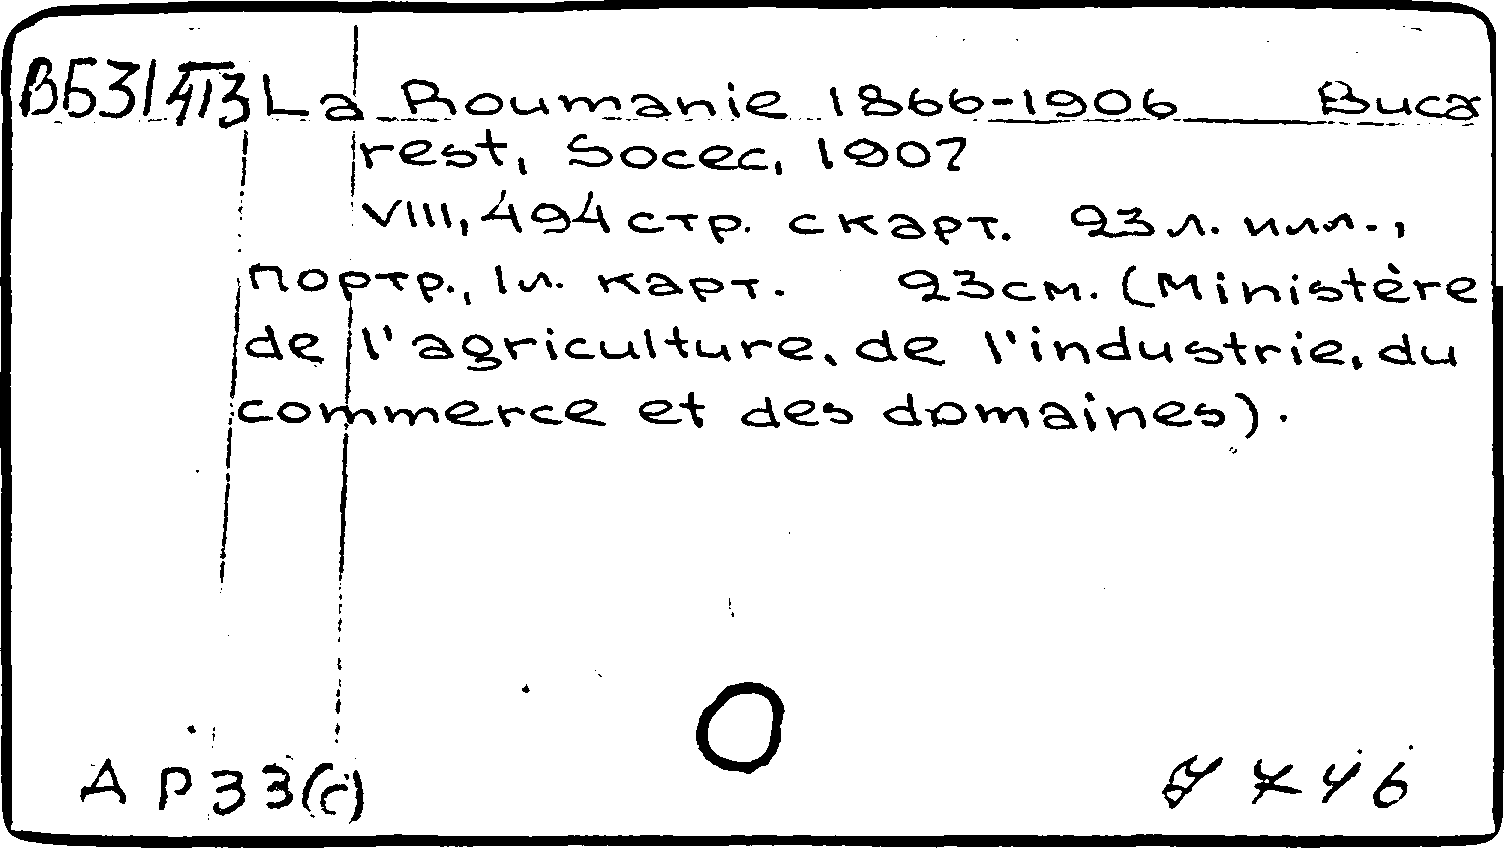 ВБ31 La Roumanie 1866-1906 Buca
rest, Socec, 1907
VIII, 494 стр. с карт. 23 л. илл.,
портр., 1 л. карт. 23 см. (Ministère
de l'agriculture, de l'industrie, du
commerce et des domaines).
А Р 33(с)